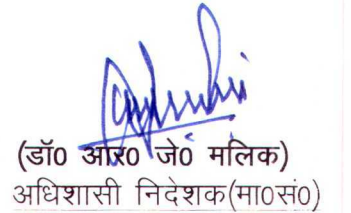 (डॉ0 आर0 जे0 मलिक)
अधिशासी निदेशक(मा0सं0)